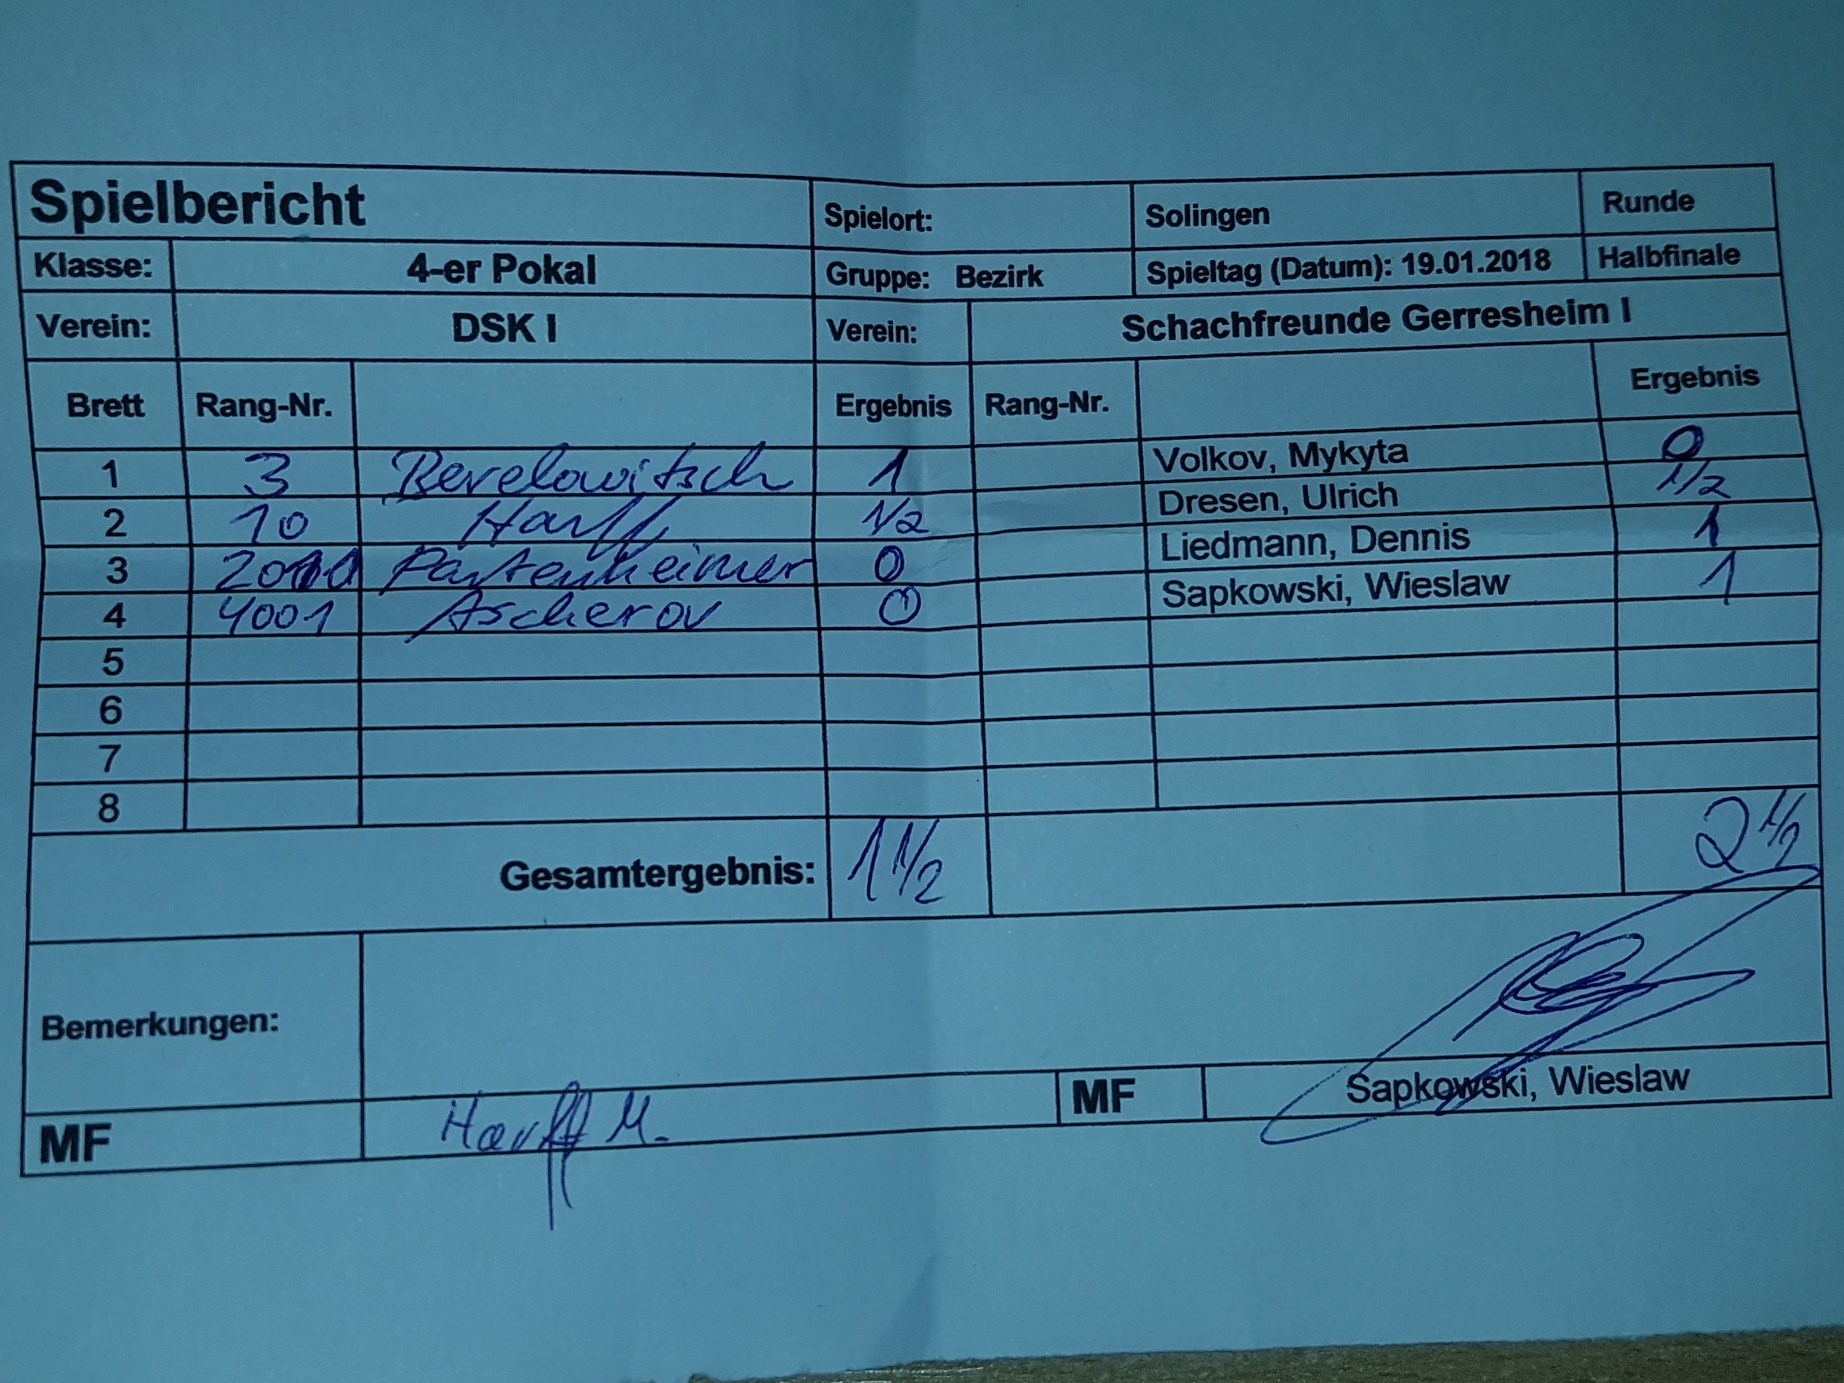 Spielbericht Spielort: Solingen Runde
Klasse: 4-er Pokal Gruppe: Bezirk Spieltag (Datum): 19.01.2018 Halbfinale
Verein: DSK I Verein: Schachfreunde Gerresheim I
Brett Rang-Nr. Ergebnis Rang-Nr. Ergebnis
1 3 Berelowitsch 1 Volkov, Mykyta 0
2 10 Harff 1/2 Dresen, Ulrich 1/2
3 Partenheimer 0 Liedmann, Dennis 1
4 4001 Ascherov 0 Sapkowski, Wieslaw 1
5
6
7
8
Gesamtergebnis: 1 1/2 2 1/2
Bemerkungen:
MF Harff M. MF Sapkowski, Wieslaw